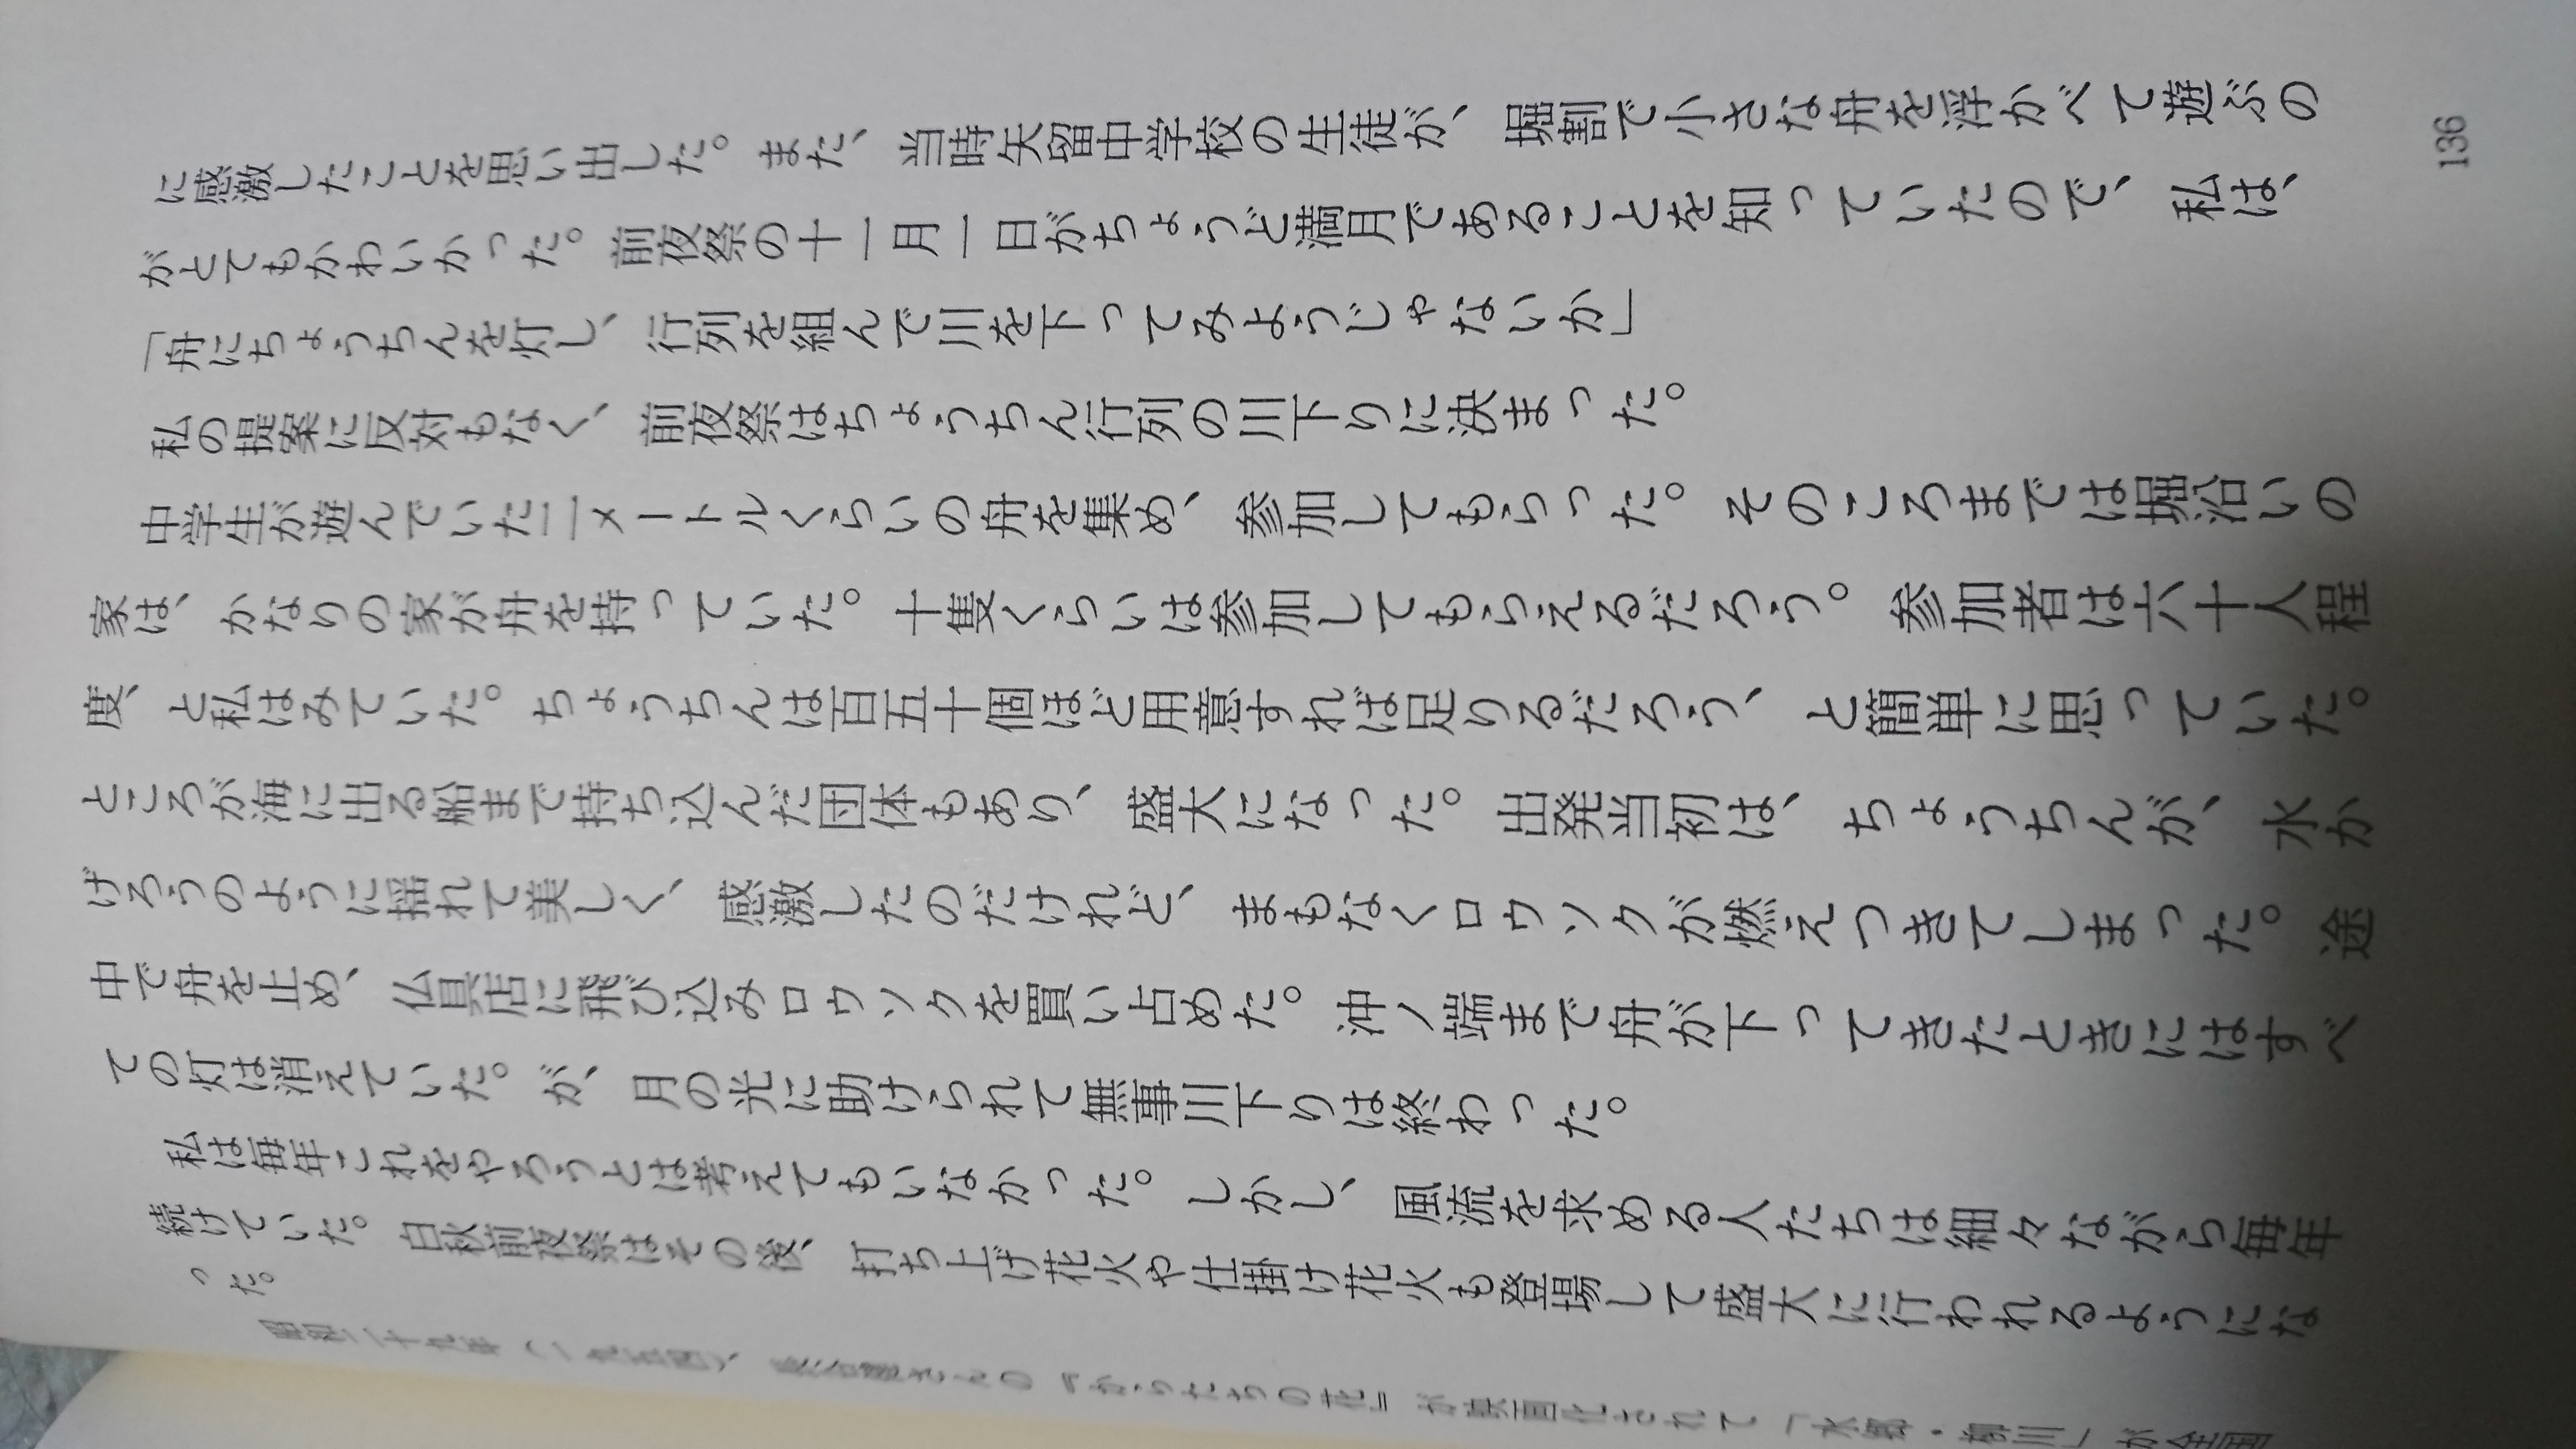 に感激したことを思い出した。また、当時矢留中学校の生徒が、堀割で小さな舟を浮かべて遊ぶの
がとてもかわいかった。前夜祭の十一月一日がちょうど満月であることを知っていたので、私は、
「舟にちょうちんを灯し、行列を組んで川を下ってみようじゃないか」
私の提案に反対もなく、前夜祭はちょうちん行列の川下りに決まった。
中学生が遊んでいた二メートルくらいの舟を集め、参加してもらった。そのころまでは堀沿いの
家は、かなりの家が舟を持っていた。十隻くらいは参加してもらえるだろう。参加者は六十人程
度、と私はみていた。ちょうちんは百五十個ほど用意すれば足りるだろう、と簡単に思っていた。
ところが海に出る船まで持ち込んだ団体もあり、盛大になった。出発当初は、ちょうちんが、水か
げろうのように揺れて美しく、感激したのだけれど、まもなくロウソクが燃えつきてしまった。途
中で舟を止め、仏具店に飛び込みロウソクを買い占めた。沖ノ端まで舟が下ってきたときにはすべ
ての灯は消えていた。が、月の光に助けられて無事川下りは終わった。
私は毎年これをやろうとは考えてもいなかった。しかし、風流を求める人たちは細々ながら毎年
続けていた。白秋前夜祭はその後、打ち上げ花火や仕掛け花火も登場して盛大に行われるようにな
った。
昭和二十九年（一九五四）、
の『からたちの花』が映画化されて「水郷・柳川」が全国
136